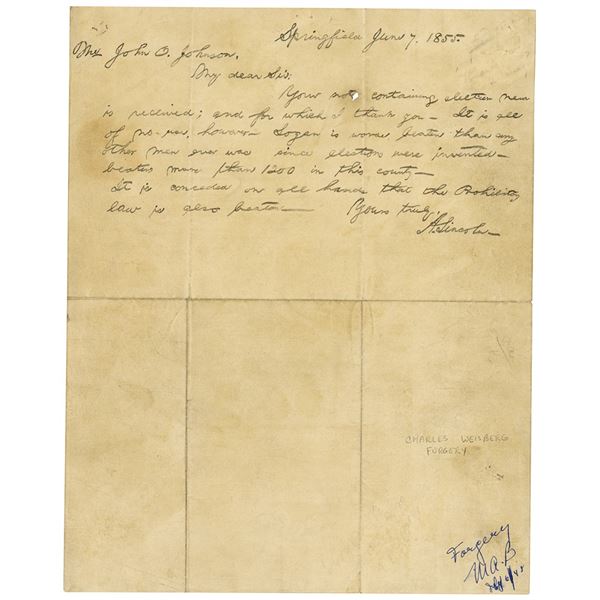 Springfield June 7. 1855.
Mr John O. Johnson.
My dear Sir:
Your note containing election news
is received; and for which I thank you— It is all
of no use, however— Logan is worse beaten than any
other man ever was since elections were invented—
beaten more than 1200 in this county—
It is conceded on all hands that the Prohibitory
law is also beaten—
Yours truly.
A. Lincoln—
CHARLES WEISBERG
FORGERY
Forgery
M.A.B